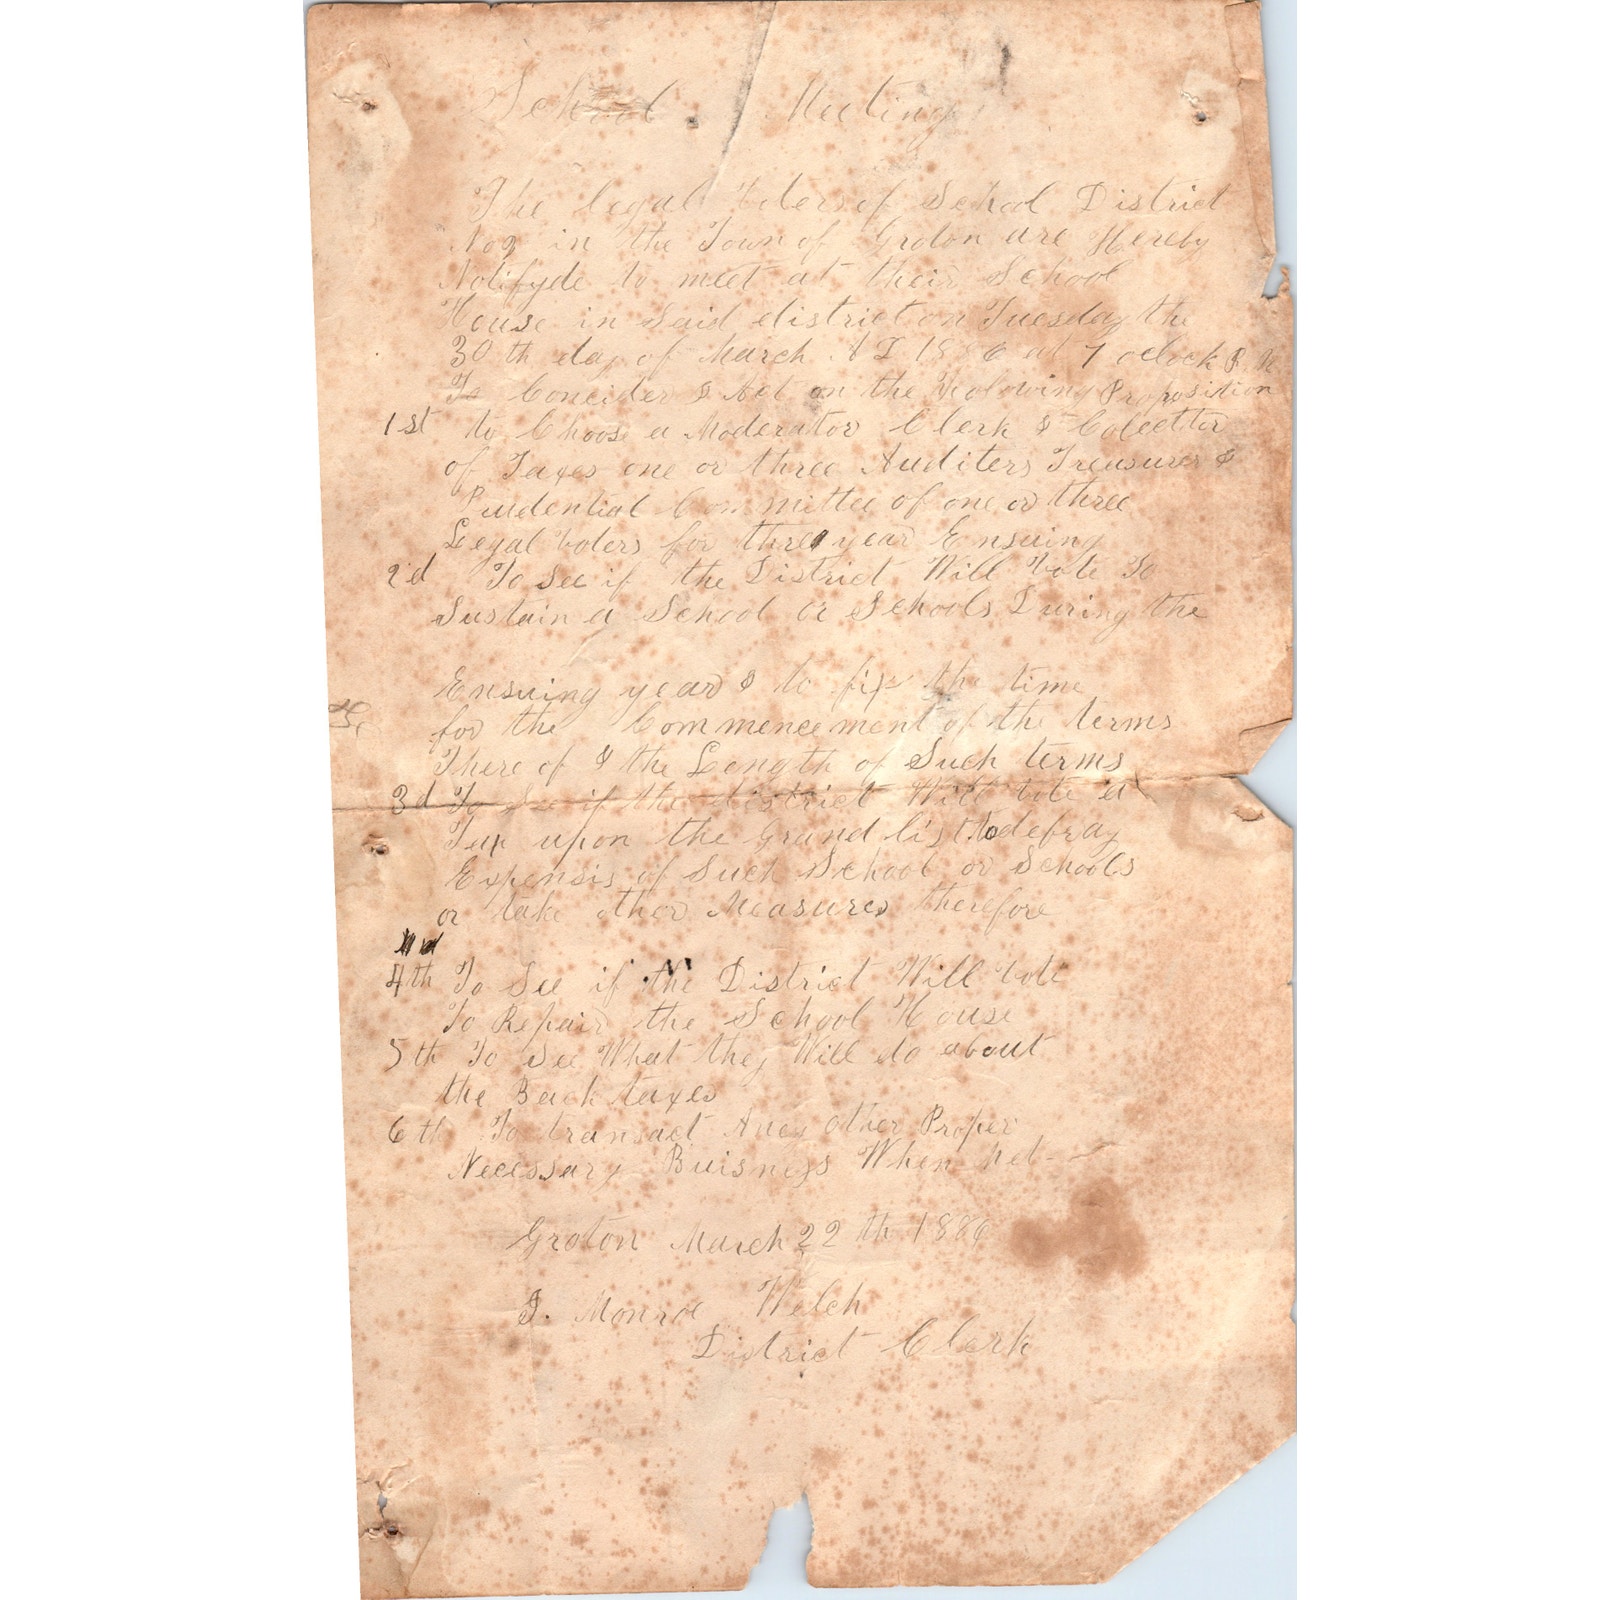 School Meeting
The legal Voters of School District
No 2 in the Town of Groton are Hereby
Notifyde to meet at their School
House in Said district on Tuesday the
30 th day of March A D 1886 at 7 oclock P. M
To Concider & Act on the Folowing Proposition
1st to Choose a Moderator Clerk & Colecttor
of Taxes one or three Auditers Treasurer &
Prudential Committee of one or three
Legal Voters for three year Ensuing
2d To See if the District Will Vote To
Sustain a School or Schools During the
Ensuing year & to fix the time
for the Commencement of the terms
There of & the Length of Such terms
3d To See if the district Will Vote a
Tax upon the Grand list to defray
Expensis of Such School or Schools
or take other Measures therefore
4th To See if the District Will Vote
To Repair the School House
5th To See What they Will do about
the Back taxes
6th To transact Aney other Proper
Necessary Buisness When Met
Groton March 22 th 1886
J. Monroe Welch
District Clerk